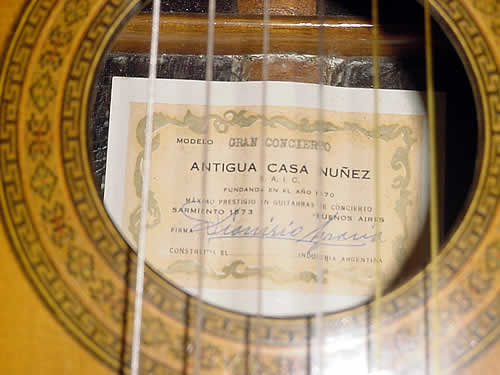 MODELO GRAN CONCIERTO
ANTIGUA CASA NUÑEZ
S.A.I.C.
FUNDADA EN EL AÑO 1870
MAXIMO PRESTIGIO EN GUITARRAS DE CONCIERTO
SARMIENTO 1573 BUENOS AIRES
FIRMA Dionisio Gracia
CONSTRUIDA EL INDUSTRIA ARGENTINA